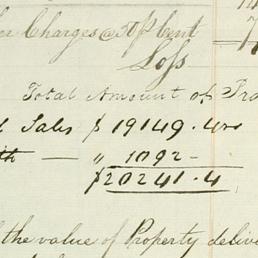 Charges @ 50 p cent
Loss
Total Amount of Tra
Sales $ 19149.4
— " 1092 -
$20241.4
the value of Property deliv